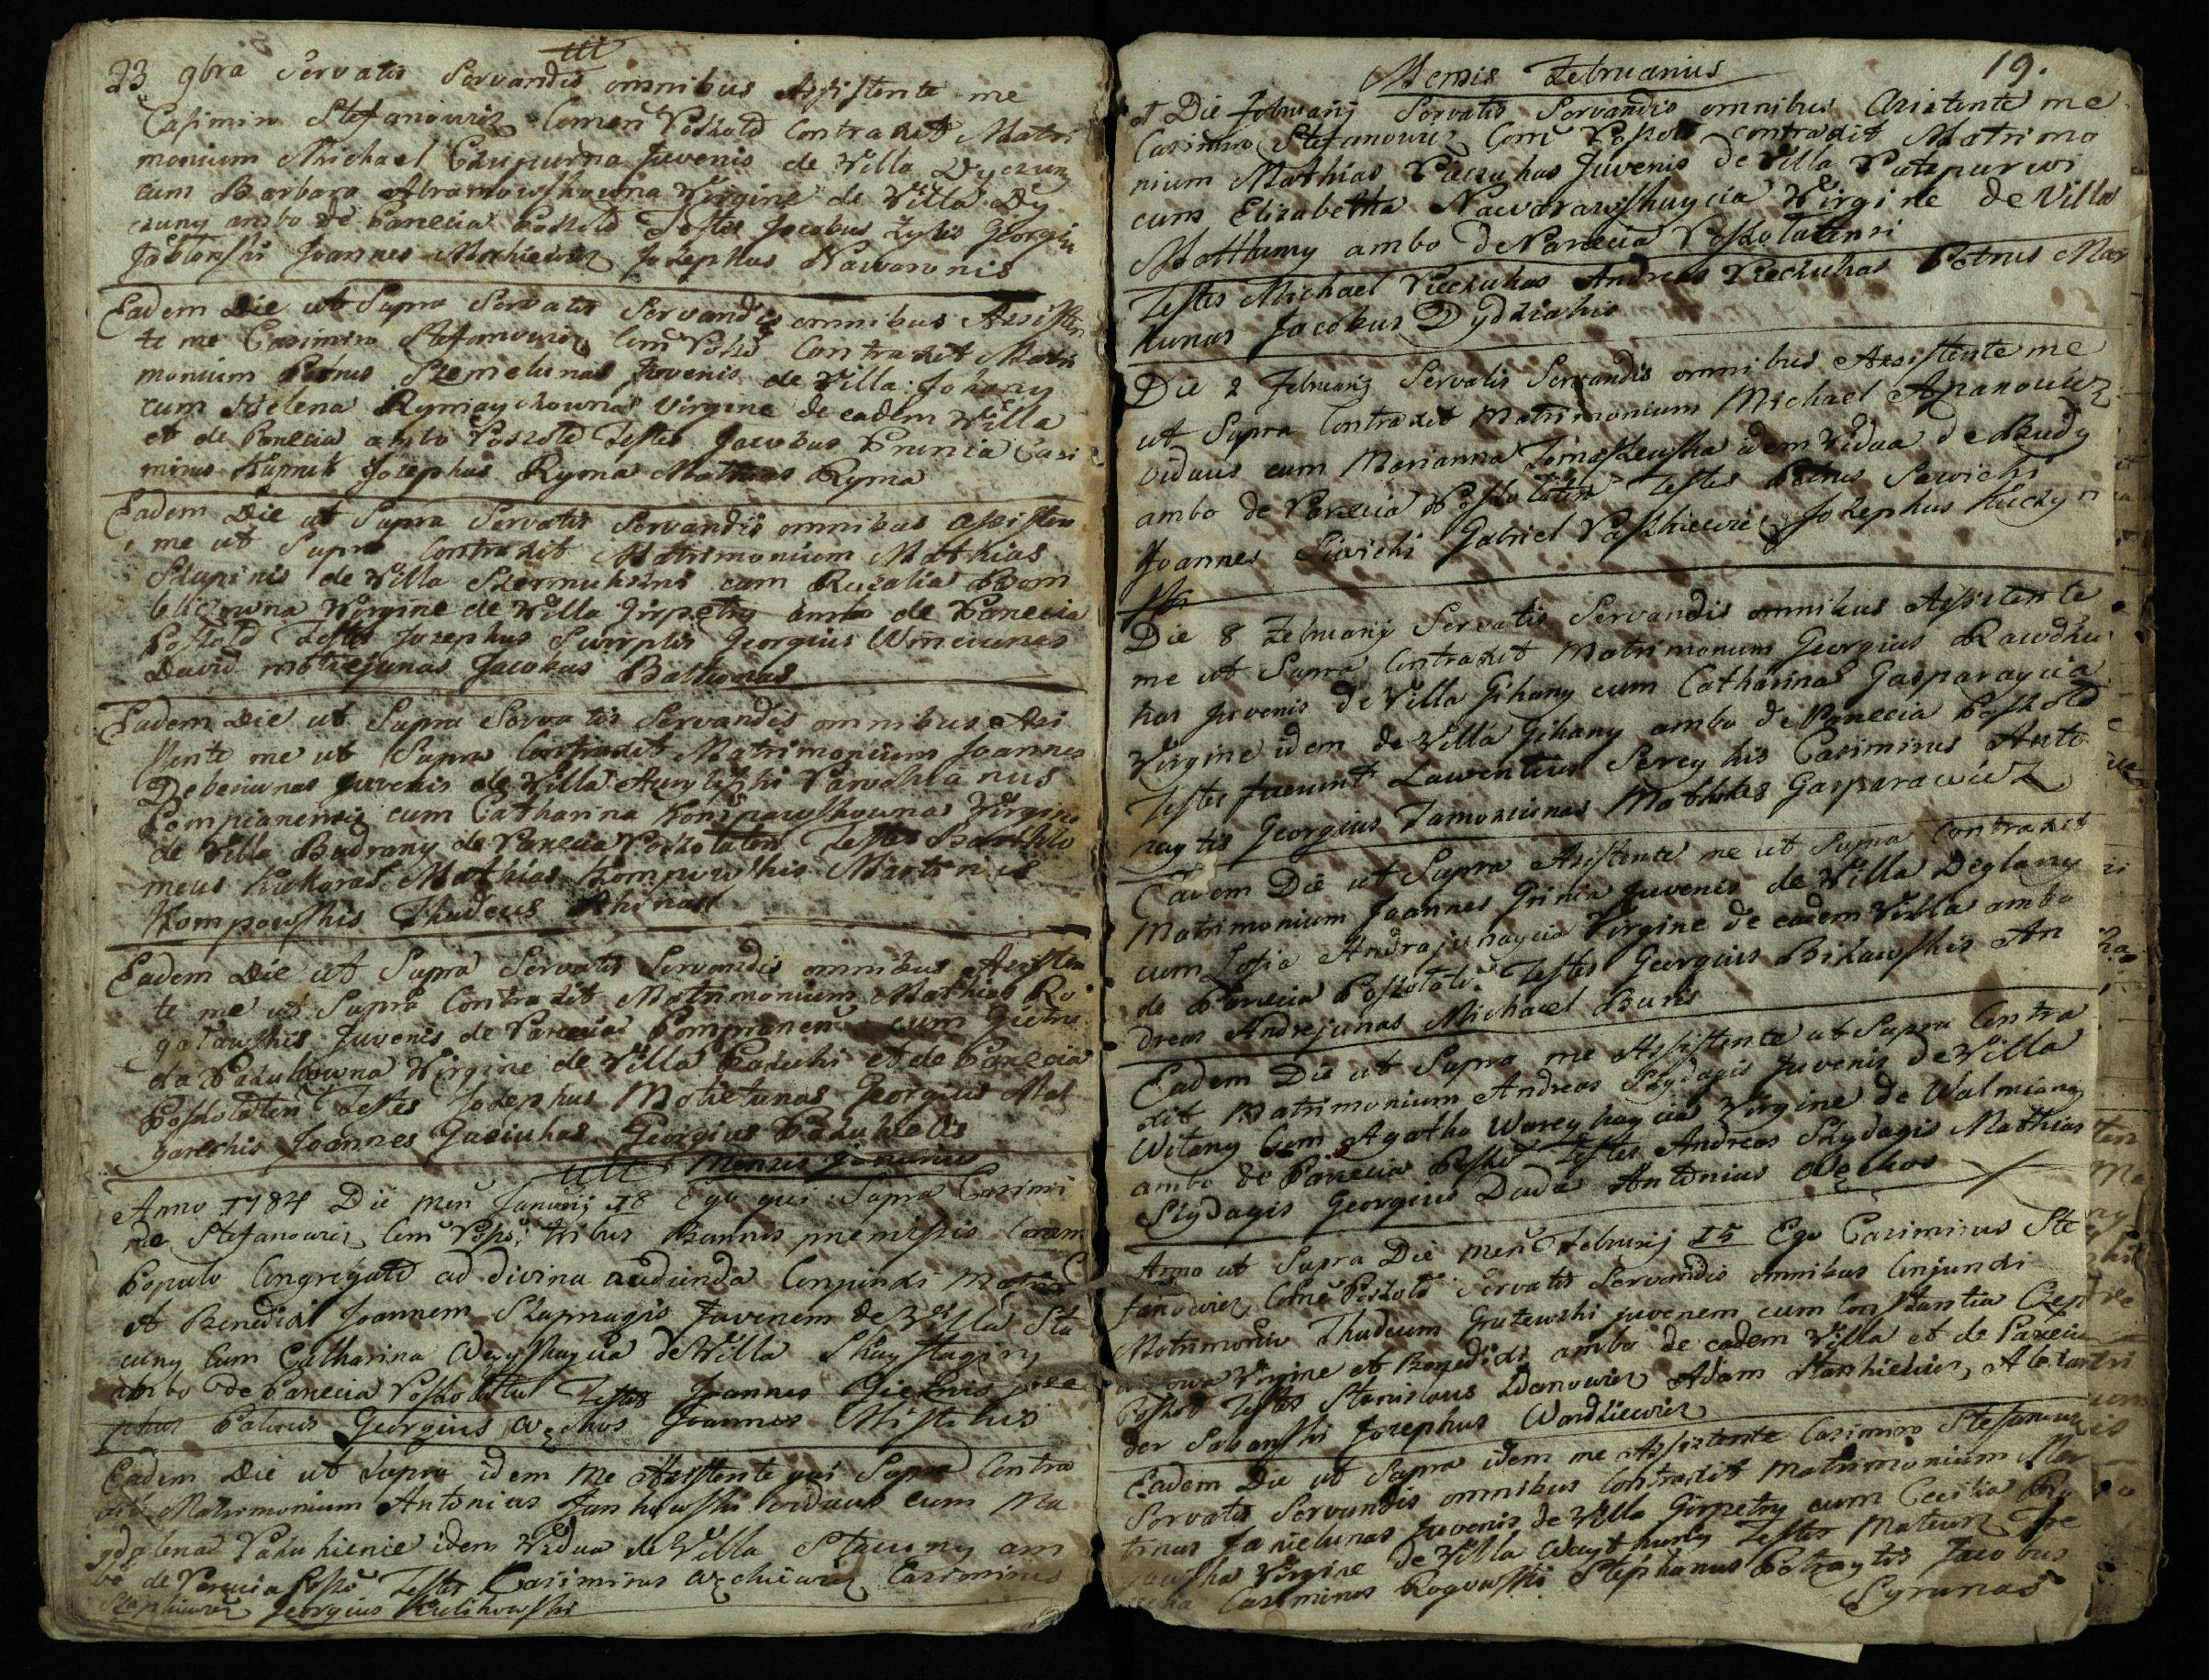 23 9bra Servatis Servandis omnibus Assistente me
Casimiro Stefanowicz Comen Poszold Contraxit Matri
monium Michael Czupurna Juvenis de Villa Dyczuny
cum Barbara Abramowskowna Virgine de Villa Dy
czuny ambo de Parecia Poszold Testes Jacobus Zylis Georgiu
Jablonski Joannes Mackiewicz Jozephus Nawaronis
Eadem Die ut Supra Servatis Servandis omnibus Assisten
te me Casimiro Stefanowicz Com Poszo Contraxit Matri
monium Petrus Szepielunas Juvenis de Villa Johany
cum Helena Rymaychownas Virgine de eadem Villa
et de Parecia ambo Poszold Testes Jacobus Prunia Casi
mirus Kupruk Jozephus Ryma Mathias Ryma
Eadem Die ut Supra Servatis Servandis omnibus Assisten
me ut Supra Contraxit Matrimonium Mathias
Szupinis de Villa Szermukszni cum Rozalia Dom
Virgine de Villa Girpetry ambo de Parecia
Poszold Testes Jozephus Swirplis Georgius Winciunas
David Motiejunas Jacobus Baltionas
Eadem Die ut Supra Servatis Servandis omnibus Asi
stente me ut Supra Contraxit Matrimonium Joannes
Debesiunas Juvenis de Villa Parochianus
Pompianensis cum Catharina Kompawskownas Virgine
de Villa Budrany de Parecia Poszolaten Testes Bartholo
meus Kiukoras Mathias Kompowskis Martinus
Kompowskis Thadeus
Eadem Die ut Supra Servatis Servandis omnibus Asisten
te me ut Supra Contraxit Matrimonium Mathias Ro
galawskis Juvenis de Parecia Pompianen cum Giertru
da Pażukowna Virgine de Villa Pażuki et de Parecia
Poszolaten Testes Jozephus Motiejunas Georgius Mal
gareskis Joannes Gasiukas Georgius Pażukielis
Mensis Januarius
Anno 1784 Die Men Januarij 18 Ego qui Supra Casimi
rus Stefanowicz Com Poszo: tribus Bannis premissis Coram
Populo Congregato ad divina audienda Conjunxi Matrim
et Benedixi Joannem Szapnagis Juvenem de Villa Sta
cuny Cum Catharina de Villa Skaystagiry
ambo de Parecia Poszolatin Testes Joannes Gielzis Joze
phus Palious Georgius Wękos Joannes Mistikis
Eadem Die ut Supra idem me Assistente qui Supra Contra
xit Matrimonium Antonius Jankowski viduus cum Ma
gdalena Pażukienie idem Vidua de Villa Stacuny am
bo de Parecia Poszo Testes Casimirus Casimirus
Georgius Kulikowski
19.
Mensis Februarius
1 Die Februarij Servatis Servandis omnibus Asistente me
Casimiro Stefanowicz Com Poszol contraxit Matrimo
nium Mathias Pieczukas Juvenis de Villa Patepurwi
cum Elizabetha Nawarawskaycia Virgine de Villa
Matthuny ambo de Parecia Poszolatensi
Testes Michael Pieczukas Andreas Pieczukas Petrus Mar
kunas Jacobus Dydziakis
Die 2 Februarij Servatis Servandis omnibus Assistente me
ut Supra Contraxit Matrimonium Michael Apanowicz
viduus cum Marianna Tomaszewska idem Vidua de Budy
ambo de Parecia Poszolatin Testes Petrus Sawicki
Joannes Siwicki Gabriel Paszkiewicz Jozephus Kuczyn
ski
Die 8 Februarij Servatis Servandis omnibus Assistente
me ut Supra Contraxit Matrimonium Georgius Rawdziu
kas Juvenis de Villa Gikany cum Catharina Gasparaycia
Virgine idem de Villa Gikany ambo de Parecia Poszold
Testes fuerunt Lawrentius Sereykis Casimirus Anto
naytis Georgius Tamoszunas Mathias Gasparawicz
Eadem Die ut Supra Asistente me ut Supra Contraxit
Matrimonium Joannes Grinia Juvenis de Villa Deglany
cum Zofia Andrajunaycia Virgine de eadem Villa ambo
de Parecia Poszolati Testes Georgius Bikawskis An
dreas Andrejunas Michael Buris
Eadem Die ut Supra me Assistente ut Supra Contra
xit Matrimonium Andreas Szydagis Juvenis de Villa
Witany Cum Agatha Wareykaycia Virgine de Walmiany
ambo de Parecia Poszo Testes Andreas Szydagis Mathias
Szydagis Georgius Duda Antonius Wękos
Anno ut Supra Die Men Februarij 15 Ego Casimirus Ste
fanowicz Come Poszold Servatis Servandis omnibus Conjunxi
Matrimonio Thadeum Gruzewski juvenem cum Constantia Czep
Virgine et Benedixi ambo de eadem Villa et de Parecia
Poszol Testes Stanislaus Zdanowicz Adam Stankiewicz, Alexan
der Sabanski Jozephus Wardziewicz
Eadem Die ut Supra idem me Assistente Casimiro Stefanowicz
Servatis Servandis omnibus Contraxit Matrimonium Mar
tinus Janielunas Juvenis de Villa Girpetry cum Cecilia
Virgine de Villa Waythuny Testes Mateusz
Casimirus Rogowski Stephanus Petraytis Jacobus
Syrunas